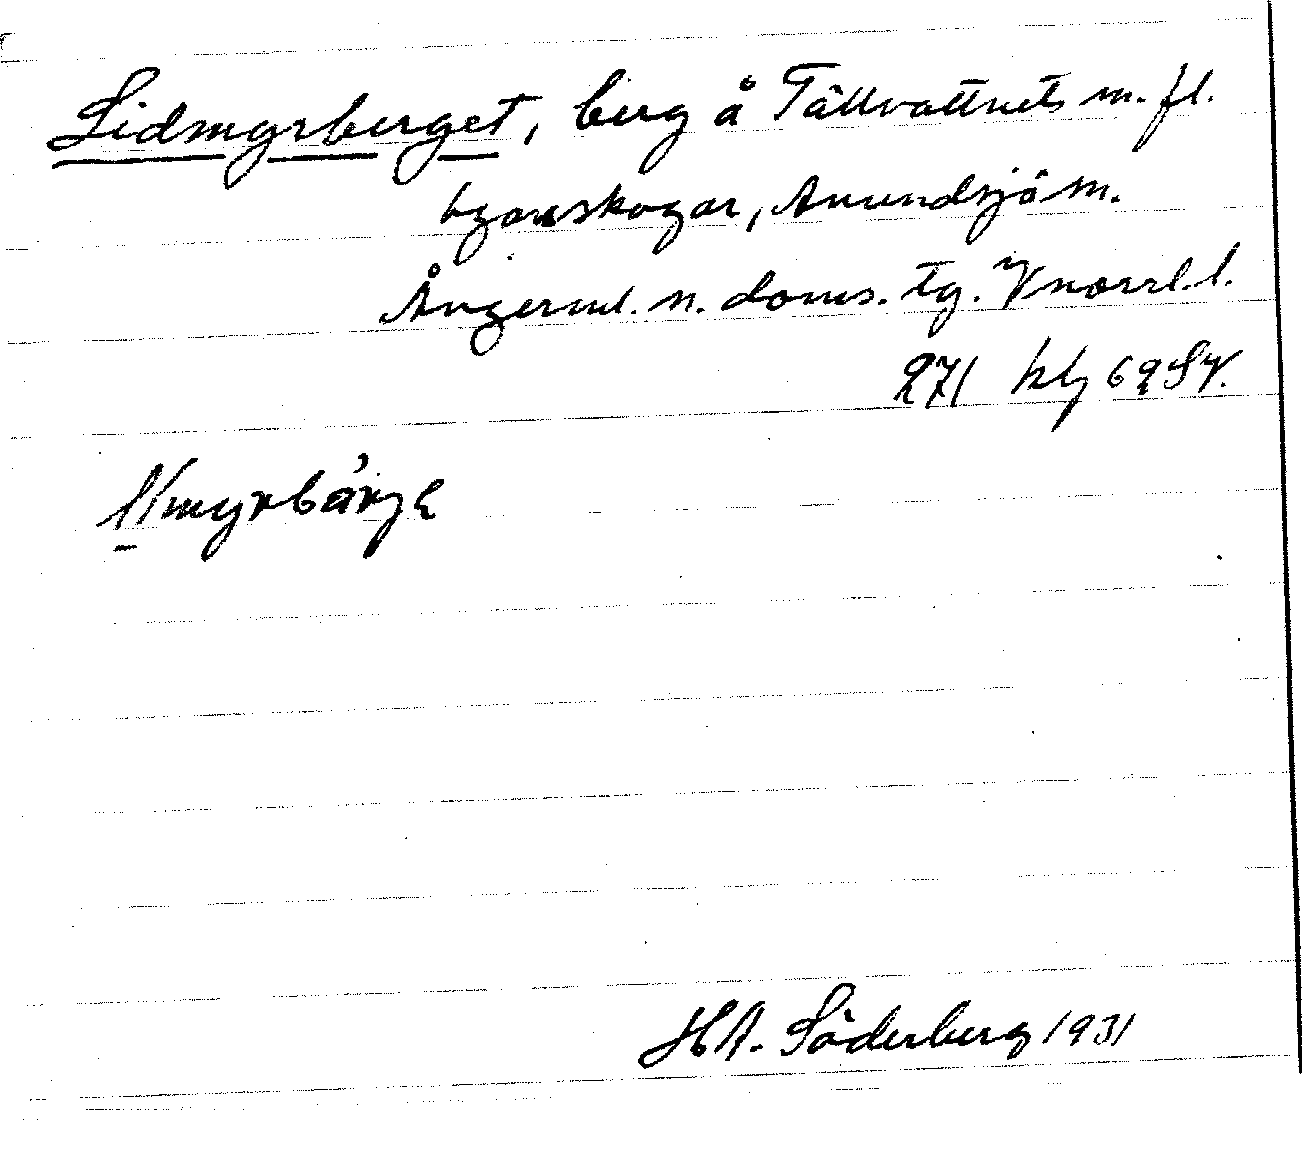 Lidmyrberget, berg å Tällvattnets m. fl.
byars skogar, Anundsjö sn.
Ångerml. n. doms. tg. Vnorrl. l.
271 hbg 62 SV.
Söderberg 1931